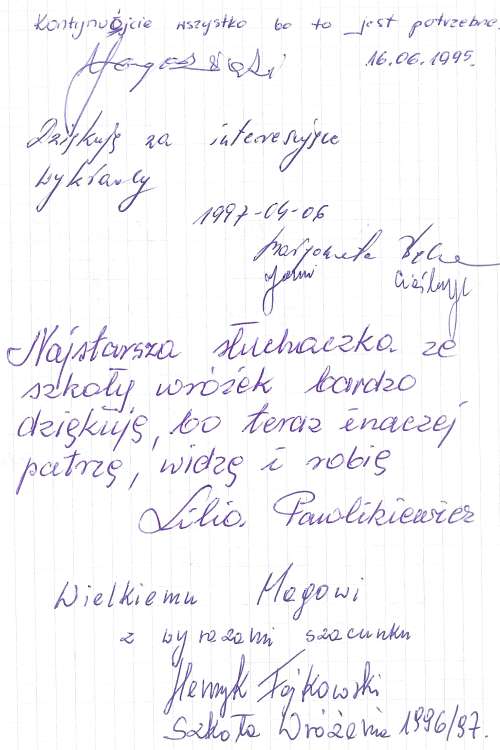 Kontynuójcie wszystko bo to jest potrzebne.
16.06.1995.
Dziękuję za interesujące
wykłady
1997-04-06
Małgorzata
Najstarsza słuchaczka ze
szkoły wróżek bardzo
dziękuję, bo teraz inaczej
patrzę, widzę i robię
Lilia Pawlikiewicz
Wielkiemu Magowi
z wyrazami szacunku
Henryk Fojkowski
Szkoła Wróżenia 1996/97.